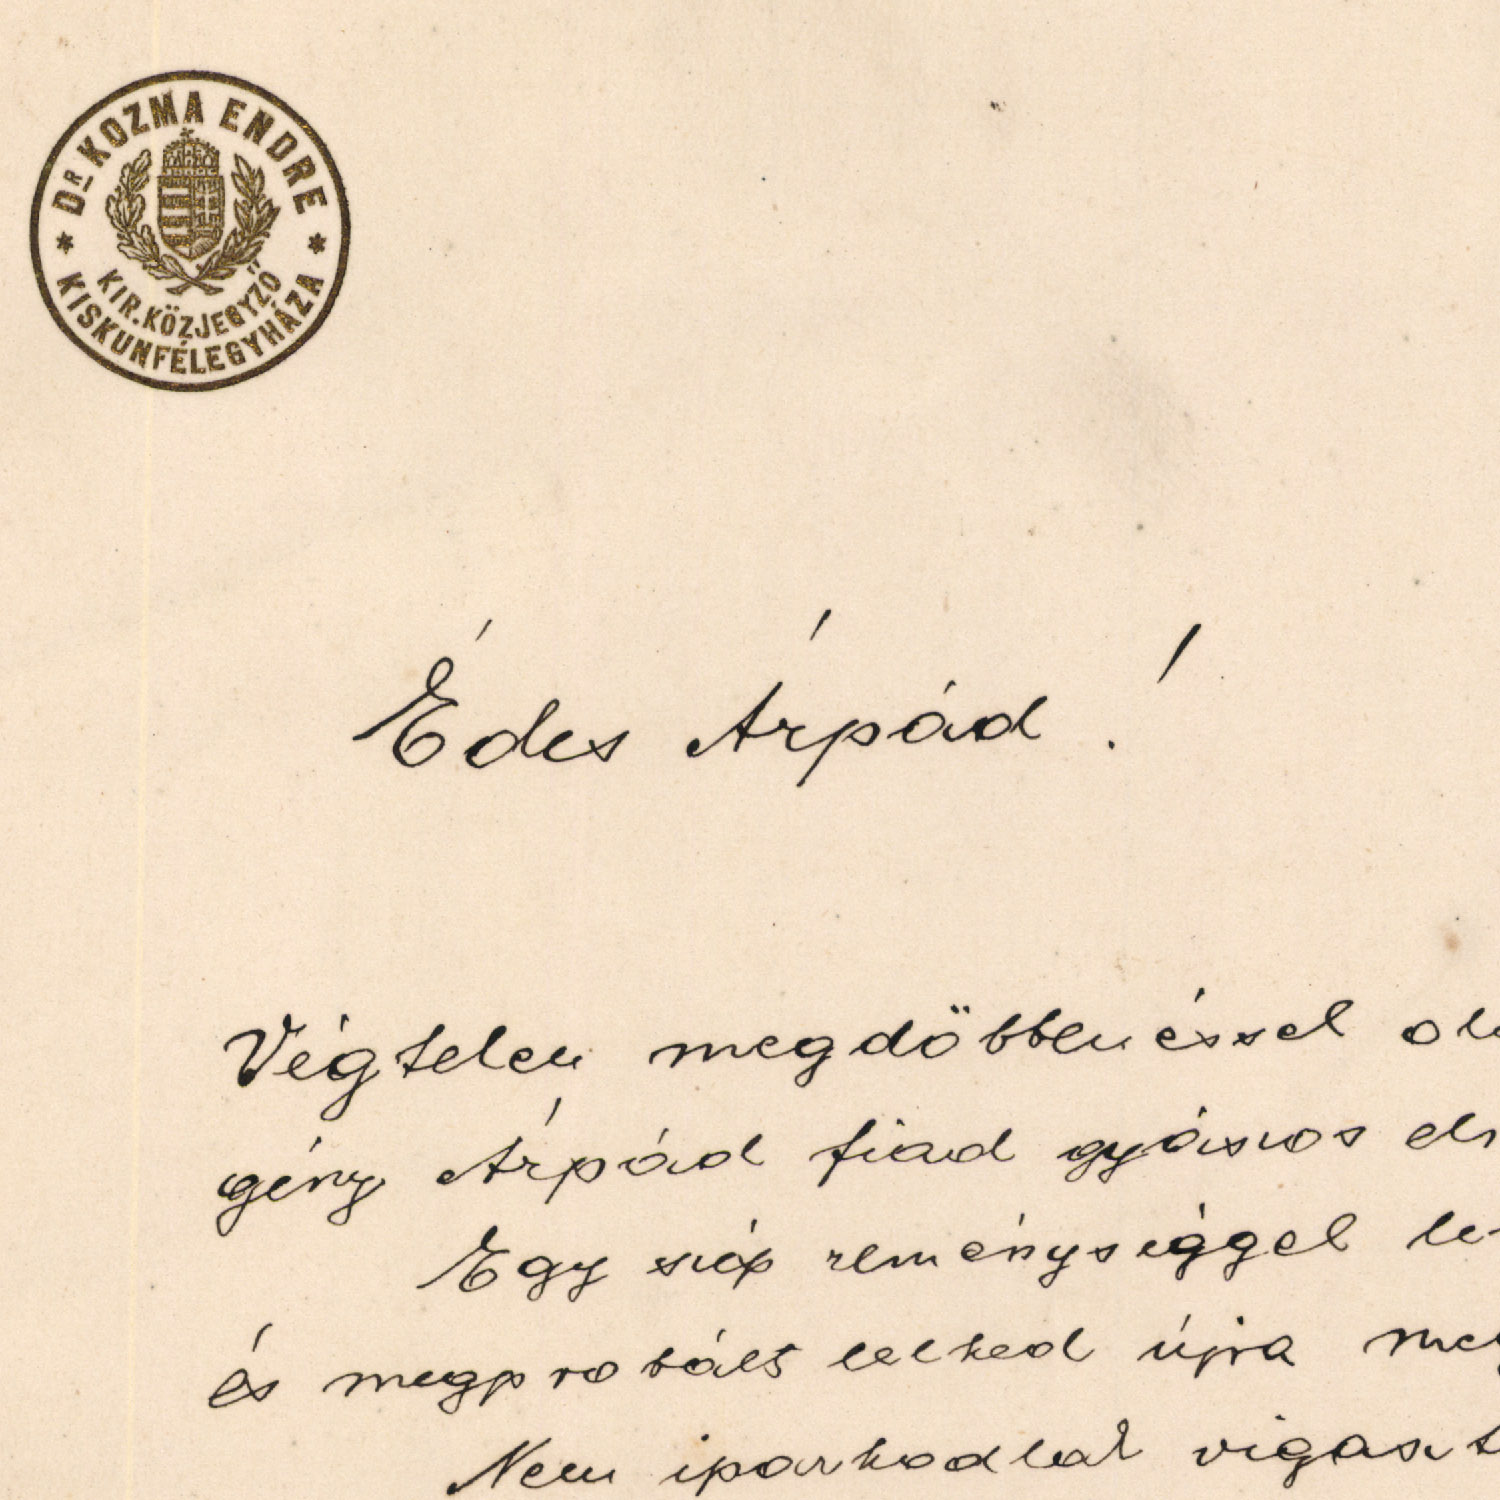 DR KOZMA ENDRE
KIR. KÖZJEGYZŐ
KISKUNFÉLEGYHÁZA
Édes Árpád!
Végtelen megdöbbenéssel
gény Árpád fiad gyászos
Egy szép reménységgel
és megprobált lelked újra
Nem iparkodlak